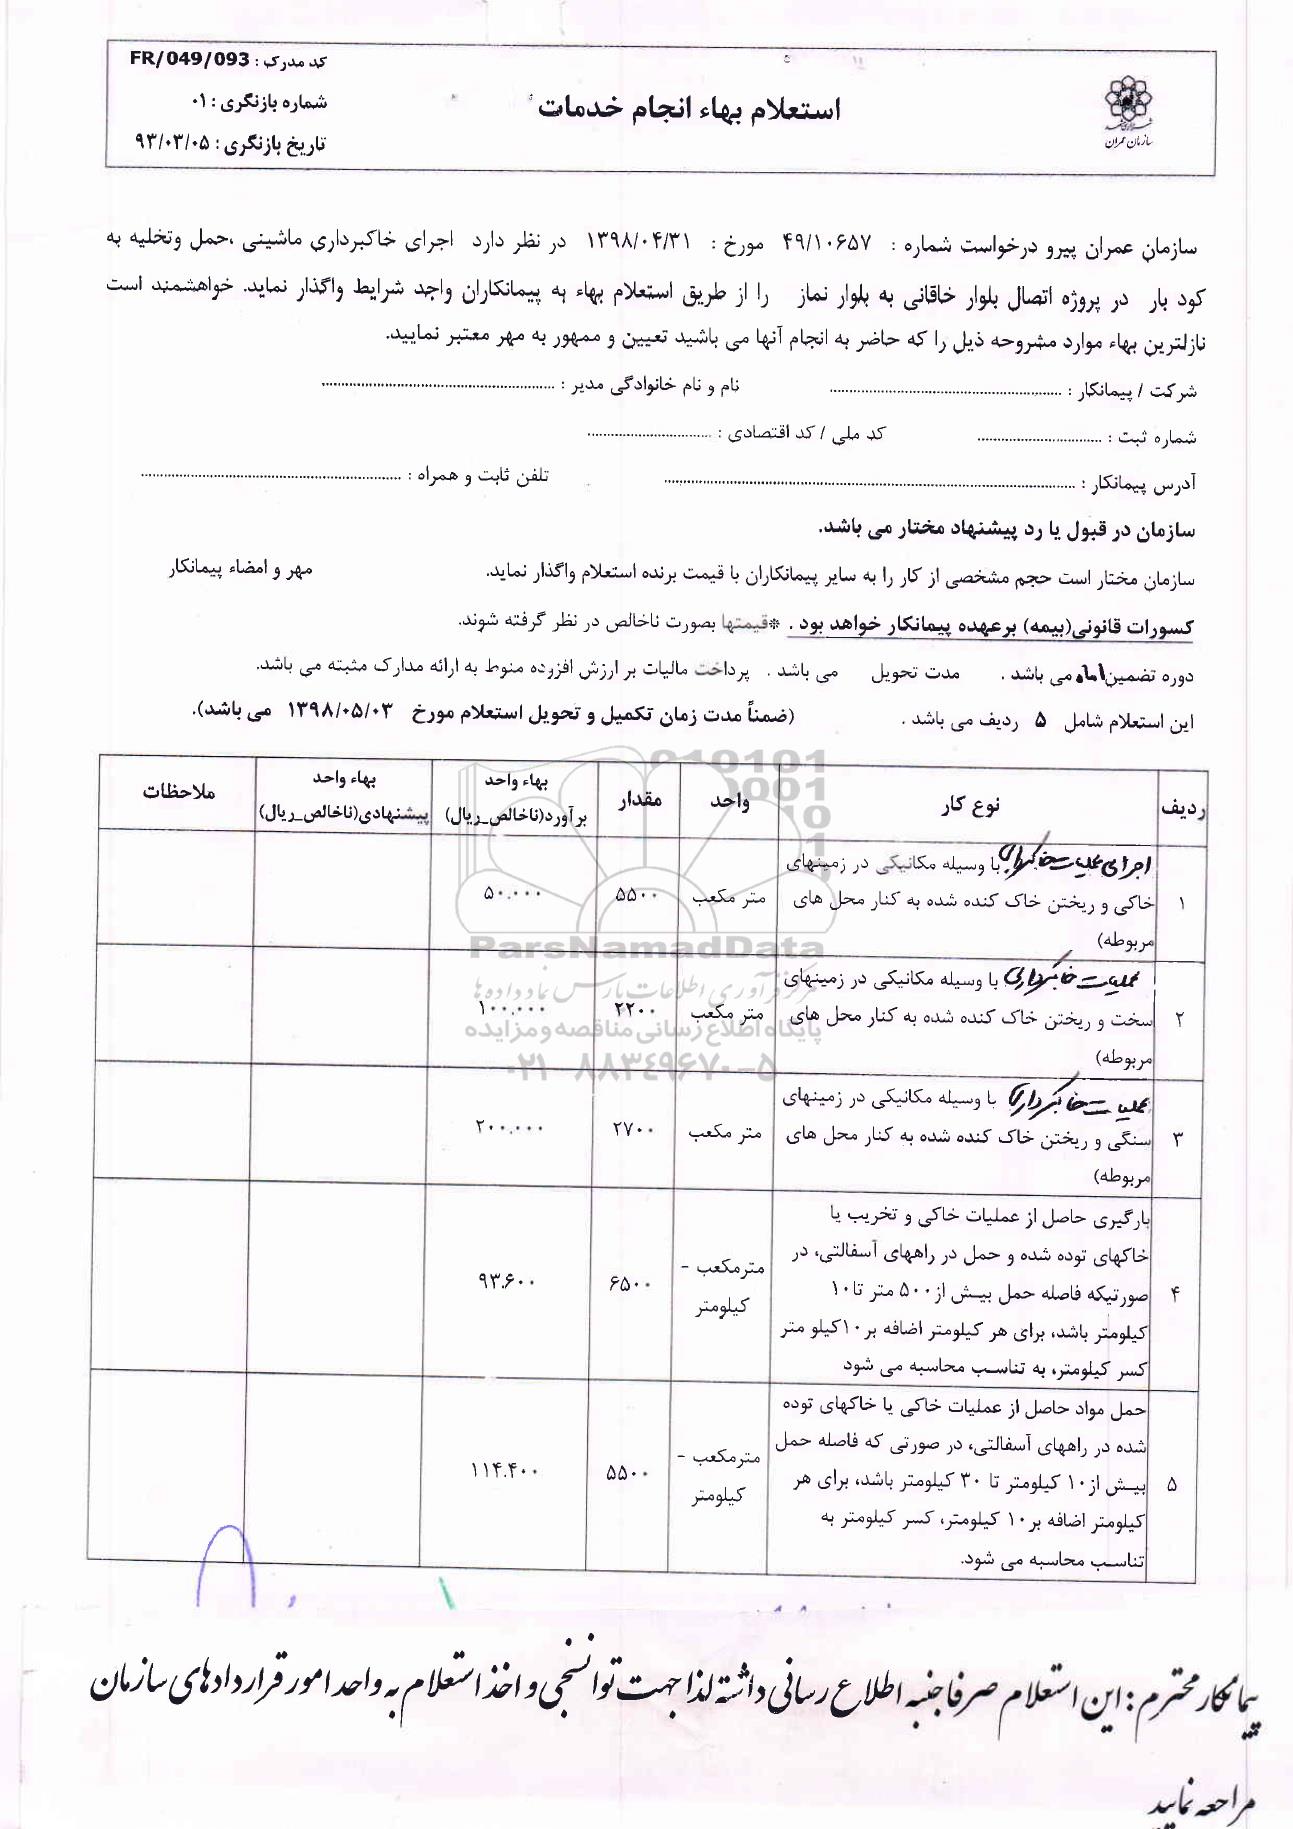 کد مدرک : FR/049/093
شماره بازنگری : ۰۱
تاریخ بازنگری : ۹۳/۰۳/۰۵
استعلام بهاء انجام خدمات
سازمان عمران
سازمان عمران پیرو درخواست شماره : ۴۹/۱۰۶۵۷ مورخ : ۱۳۹۸/۰۴/۳۱ در نظر دارد اجرای خاکبرداری ماشینی ،حمل وتخلیه به
کود بار در پروژه اتصال بلوار خاقانی به بلوار نماز را از طریق استعلام بهاء به پیمانکاران واجد شرایط واگذار نماید. خواهشمند است
نازلترین بهاء موارد مشروحه ذیل را که حاضر به انجام آنها می باشید تعیین و ممهور به مهر معتبر نمایید.
شرکت / پیمانکار : .......... نام و نام خانوادگی مدیر : ..........
شماره ثبت : .......... کد ملی / کد اقتصادی : ..........
آدرس پیمانکار : .......... تلفن ثابت و همراه : ..........
سازمان در قبول یا رد پیشنهاد مختار می باشد.
سازمان مختار است حجم مشخصی از کار را به سایر پیمانکاران با قیمت برنده استعلام واگذار نماید. مهر و امضاء پیمانکار
کسورات قانونی(بیمه) برعهده پیمانکار خواهد بود . *قیمتها بصورت ناخالص در نظر گرفته شوند.
دوره تضمین۱ماه می باشد . مدت تحویل می باشد . پرداخت مالیات بر ارزش افزرده منوط به ارائه مدارک مثبته می باشد.
این استعلام شامل ۵ ردیف می باشد . (ضمناً مدت زمان تکمیل و تحویل استعلام مورخ ۱۳۹۸/۰۵/۰۳ می باشد).
ردیف نوع کار واحد مقدار بهاء واحد برآورد(ناخالص_ریال) بهاء واحد پیشنهادی(ناخالص_ریال) ملاحظات
اجرای عملیات خاکبرداری با وسیله مکانیکی در زمینهای
۱ خاکی و ریختن خاک کنده شده به کنار محل های متر مکعب ۵۵۰۰ ۵۰.۰۰۰
مربوطه)
عملیات خاکبرداری با وسیله مکانیکی در زمینهای
۲ سخت و ریختن خاک کنده شده به کنار محل های متر مکعب ۲۲۰۰ ۱۰۰.۰۰۰
مربوطه)
عملیات خاکبرداری با وسیله مکانیکی در زمینهای
۳ سنگی و ریختن خاک کنده شده به کنار محل های متر مکعب ۲۷۰۰ ۲۰۰.۰۰۰
مربوطه)
بارگیری حاصل از عملیات خاکی و تخریب یا
خاکهای توده شده و حمل در راههای آسفالتی، در
۴ صورتیکه فاصله حمل بیش از ۵۰۰ متر تا۱۰ مترمکعب - کیلومتر ۶۵۰۰ ۹۳.۶۰۰
کیلومتر باشد، برای هر کیلومتر اضافه بر ۱۰کیلو متر
کسر کیلومتر، به تناسب محاسبه می شود
حمل مواد حاصل از عملیات خاکی یا خاکهای توده
شده در راههای آسفالتی، در صورتی که فاصله حمل
۵ بیش از۱۰ کیلومتر تا ۳۰ کیلومتر باشد، برای هر مترمکعب - کیلومتر ۵۵۰۰ ۱۱۴.۴۰۰
کیلومتر اضافه بر ۱۰ کیلومتر، کسر کیلومتر به
تناسب محاسبه می شود.
ParsNamadData
مرکز فرآوری اطلاعات پارس نماد داده ها
پایگاه اطلاع رسانی مناقصه و مزایده
۰۲۱-۸۸۳۴۹۶۷۰-۵
پیمانکار محترم : این استعلام صرفا جنبه اطلاع رسانی داشته لذا جهت توانسنجی و اخذ استعلام به واحد امور قراردادهای سازمان
مراجعه نمایید